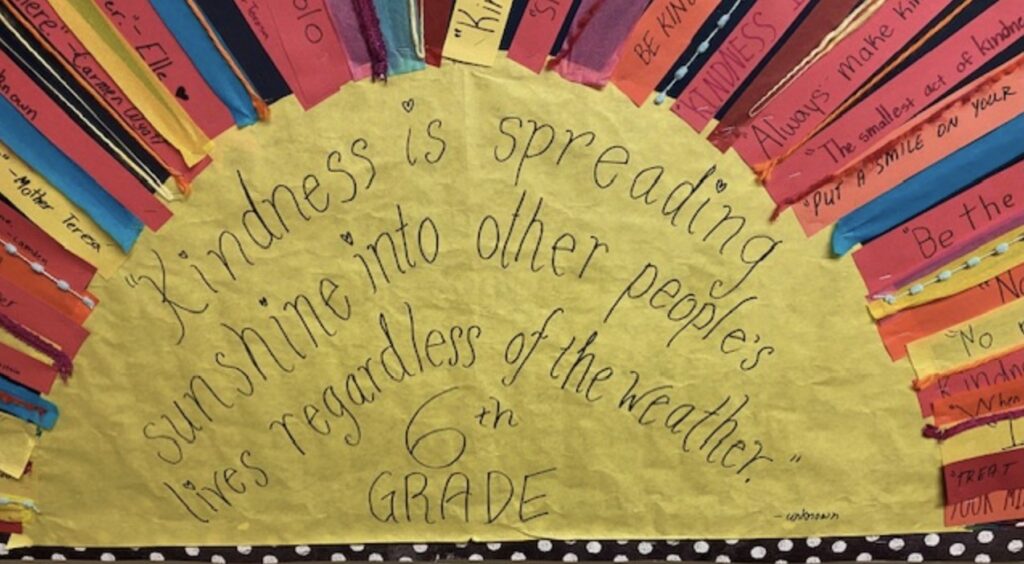 "Kindness is spreading
sunshine into other people's
lives regardless of the weather."
6th
GRADE
-unknown
-Mother Teresa
-Elle
olo
"Kin
BE KIN
"KINDNESS
"Always make kin
"The smallest act of kindne
"PUT A SMILE ON YOUR
"Be the
"No
Kindn
"When
"TREAT
YOUR MI